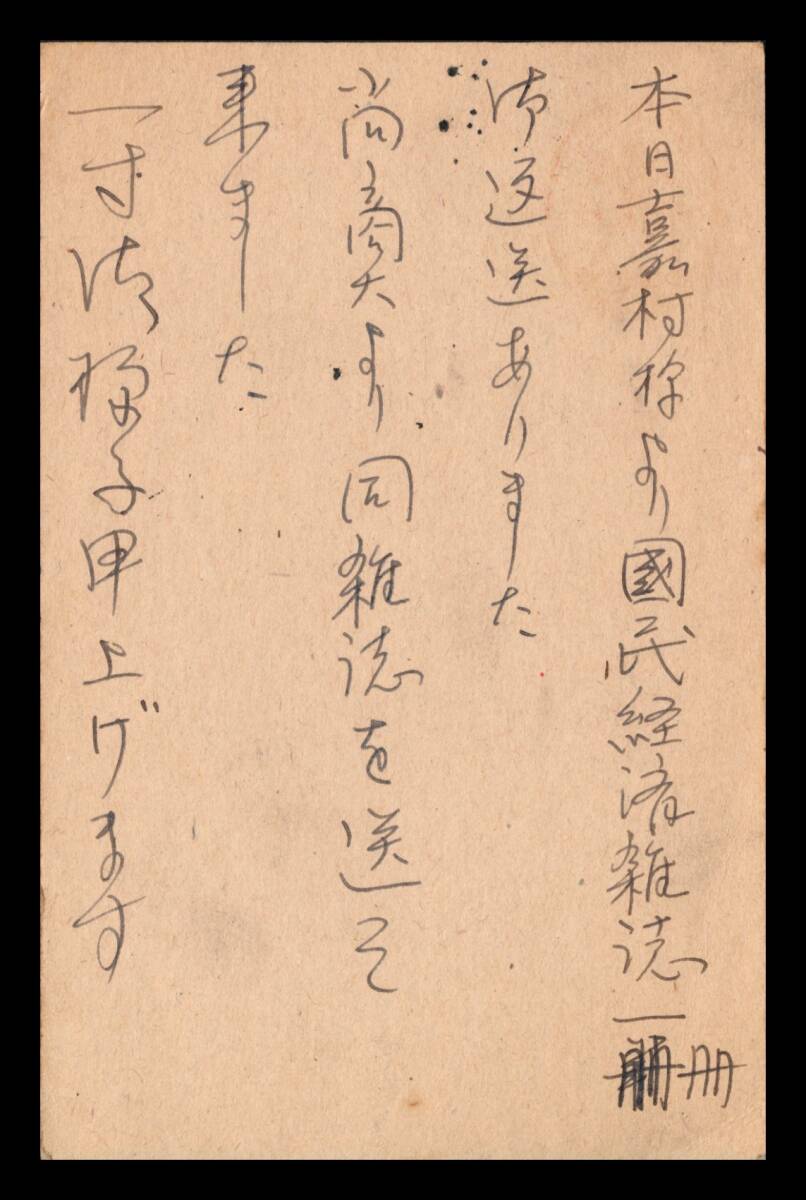 本日嘉村様より國民経済雑誌一冊
御返送ありました
尚商大より同雑誌を送って
来ました
一寸御様子申上げます